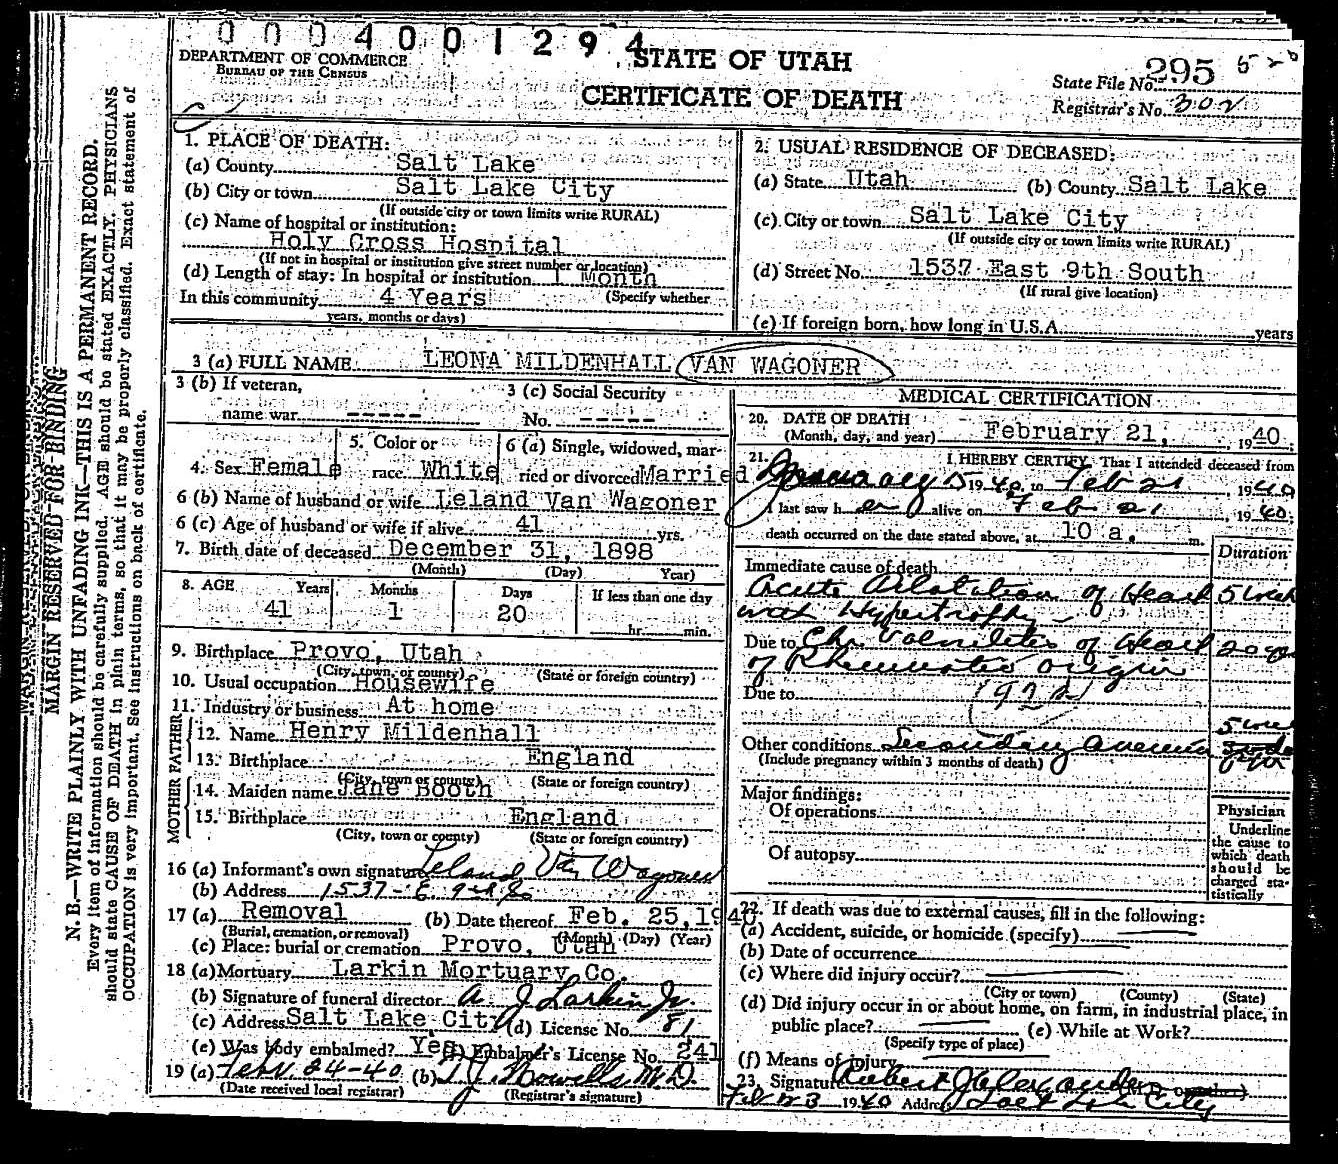 0004001294
DEPARTMENT OF COMMERCE
BUREAU OF THE CENSUS
STATE OF UTAH
CERTIFICATE OF DEATH
State File No. 295
Registrar's No. 302
MARGIN RESERVED FOR BINDING
N. B.—WRITE PLAINLY WITH UNFADING INK—THIS IS A PERMANENT RECORD.
Every item of information should be carefully supplied. AGE should be stated EXACTLY. PHYSICIANS
should state CAUSE OF DEATH in plain terms, so that it may be properly classified. Exact statement of
OCCUPATION is very important. See instructions on back of certificate.
1. PLACE OF DEATH:
(a) County Salt Lake
(b) City or town Salt Lake City
(If outside city or town limits write RURAL)
(c) Name of hospital or institution:
Holy Cross Hospital
(If not in hospital or institution give street number or location)
(d) Length of stay: In hospital or institution 1 Month
In this community 4 Years (Specify whether
years, months or days)
2. USUAL RESIDENCE OF DECEASED:
(a) State Utah (b) County Salt Lake
(c) City or town Salt Lake City
(If outside city or town limits write RURAL)
(d) Street No. 1537 East 9th South
(If rural give location)
(e) If foreign born, how long in U.S.A. years
3 (a) FULL NAME LEONA MILDENHALL VAN WAGONER
3 (b) If veteran,
name war -----
3 (c) Social Security
No. -----
4. Sex Female
5. Color or
race White
6 (a) Single, widowed, mar-
ried or divorced Married
6 (b) Name of husband or wife Leland Van Wagoner
6 (c) Age of husband or wife if alive 41 yrs.
7. Birth date of deceased December 31, 1898
(Month) (Day) Year)
8. AGE Years Months Days If less than one day
41 1 20 hr. min.
9. Birthplace Provo, Utah
(City, town, or county) (State or foreign country)
10. Usual occupation Housewife
11. Industry or business At home
FATHER
12. Name Henry Mildenhall
13. Birthplace England
(City, town or county) (State or foreign country)
MOTHER
14. Maiden name Jane Booth
15. Birthplace England
(City, town or county) (State or foreign country)
16 (a) Informant's own signature Leland Van Wagoner
(b) Address 1537-E 9th So
17 (a) Removal (b) Date thereof Feb. 25, 1940
(Burial, cremation, or removal) (Month) (Day) (Year)
(c) Place: burial or cremation Provo, Utah
18 (a) Mortuary Larkin Mortuary Co.
(b) Signature of funeral director A J Larkin Jr.
(c) Address Salt Lake City (d) License No. 81
(e) Was body embalmed? Yes (f) Embalmer's License No. 241
19 (a) Feb. 24-40 (b) T. J. Howells M.D.
(Date received local registrar) (Registrar's signature)
MEDICAL CERTIFICATION
20. DATE OF DEATH
(Month, day, and year) February 21, 1940
21. I HEREBY CERTIFY That I attended deceased from
1940 to Feb 21 1940
I last saw her alive on Feb 21 1940
death occurred on the date stated above, at 10 a. m.
Duration
Immediate cause of death
Acute Dilatation of Heart 5 week
with Hypertrophy
Due to Chr. Valvulitis of Heart 20 yrs
of Rheumatic origin
Due to (92a)
Other conditions Secondary Anemia
(Include pregnancy within 3 months of death)
Major findings:
Of operations
Of autopsy
Physician
Underline
the cause to
which death
should be
charged sta-
tistically
22. If death was due to external causes, fill in the following:
(a) Accident, suicide, or homicide (specify)
(b) Date of occurrence
(c) Where did injury occur?
(City or town) (County) (State)
(d) Did injury occur in or about home, on farm, in industrial place, in
public place? (e) While at Work?
(Specify type of place)
(f) Means of injury
23. Signature Robert J Alexander
Feb 23 1940 Address Salt Lake City